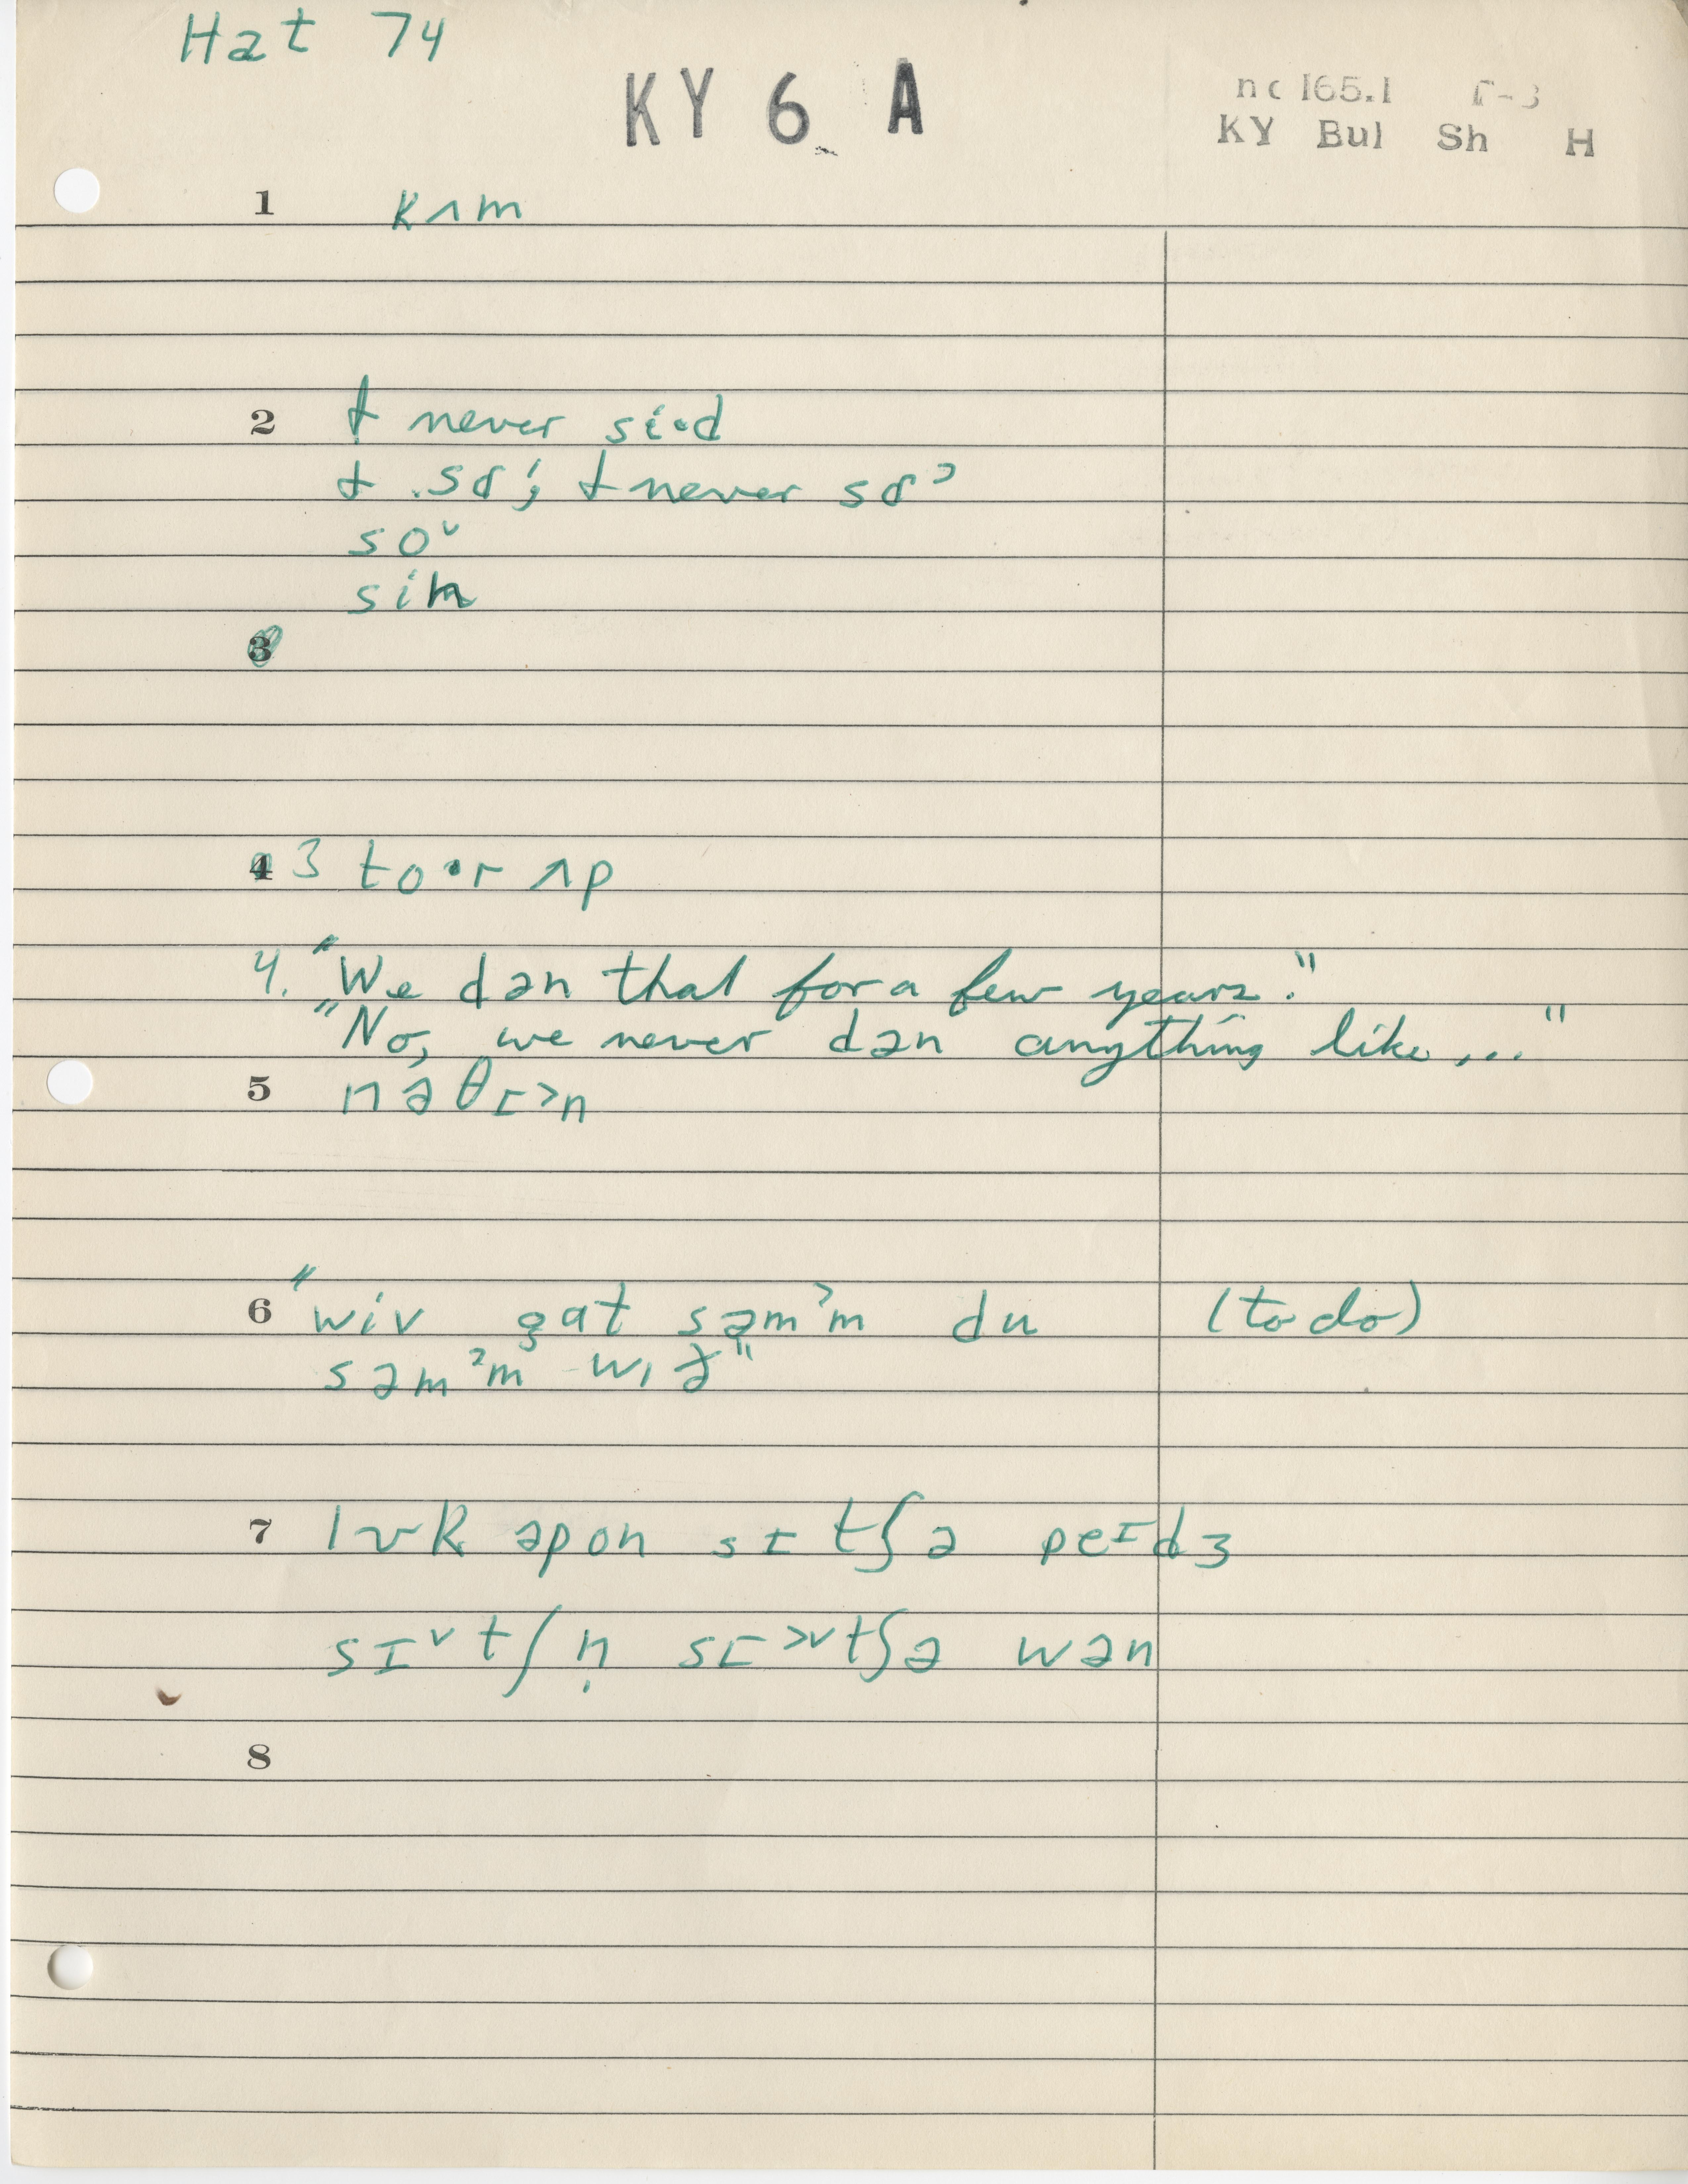 Hat 74
KY 6 A
nc 165.1
KY Bul Sh H
1 kʌm
2 ɨ never si·d
so˅
sin
3
4 3 to·r ʌp
4. "We dən that for a few years."
"No, we never dən anything like..."
5 nəθɪ˃n
6 "wiv gat səmˀm du (to do)
səmˀm wɪð"
7 lʊk apon sɪtʃə peɪdʒ
sɪ˅tʃn̩ sɪ˃˅tʃə wən
8